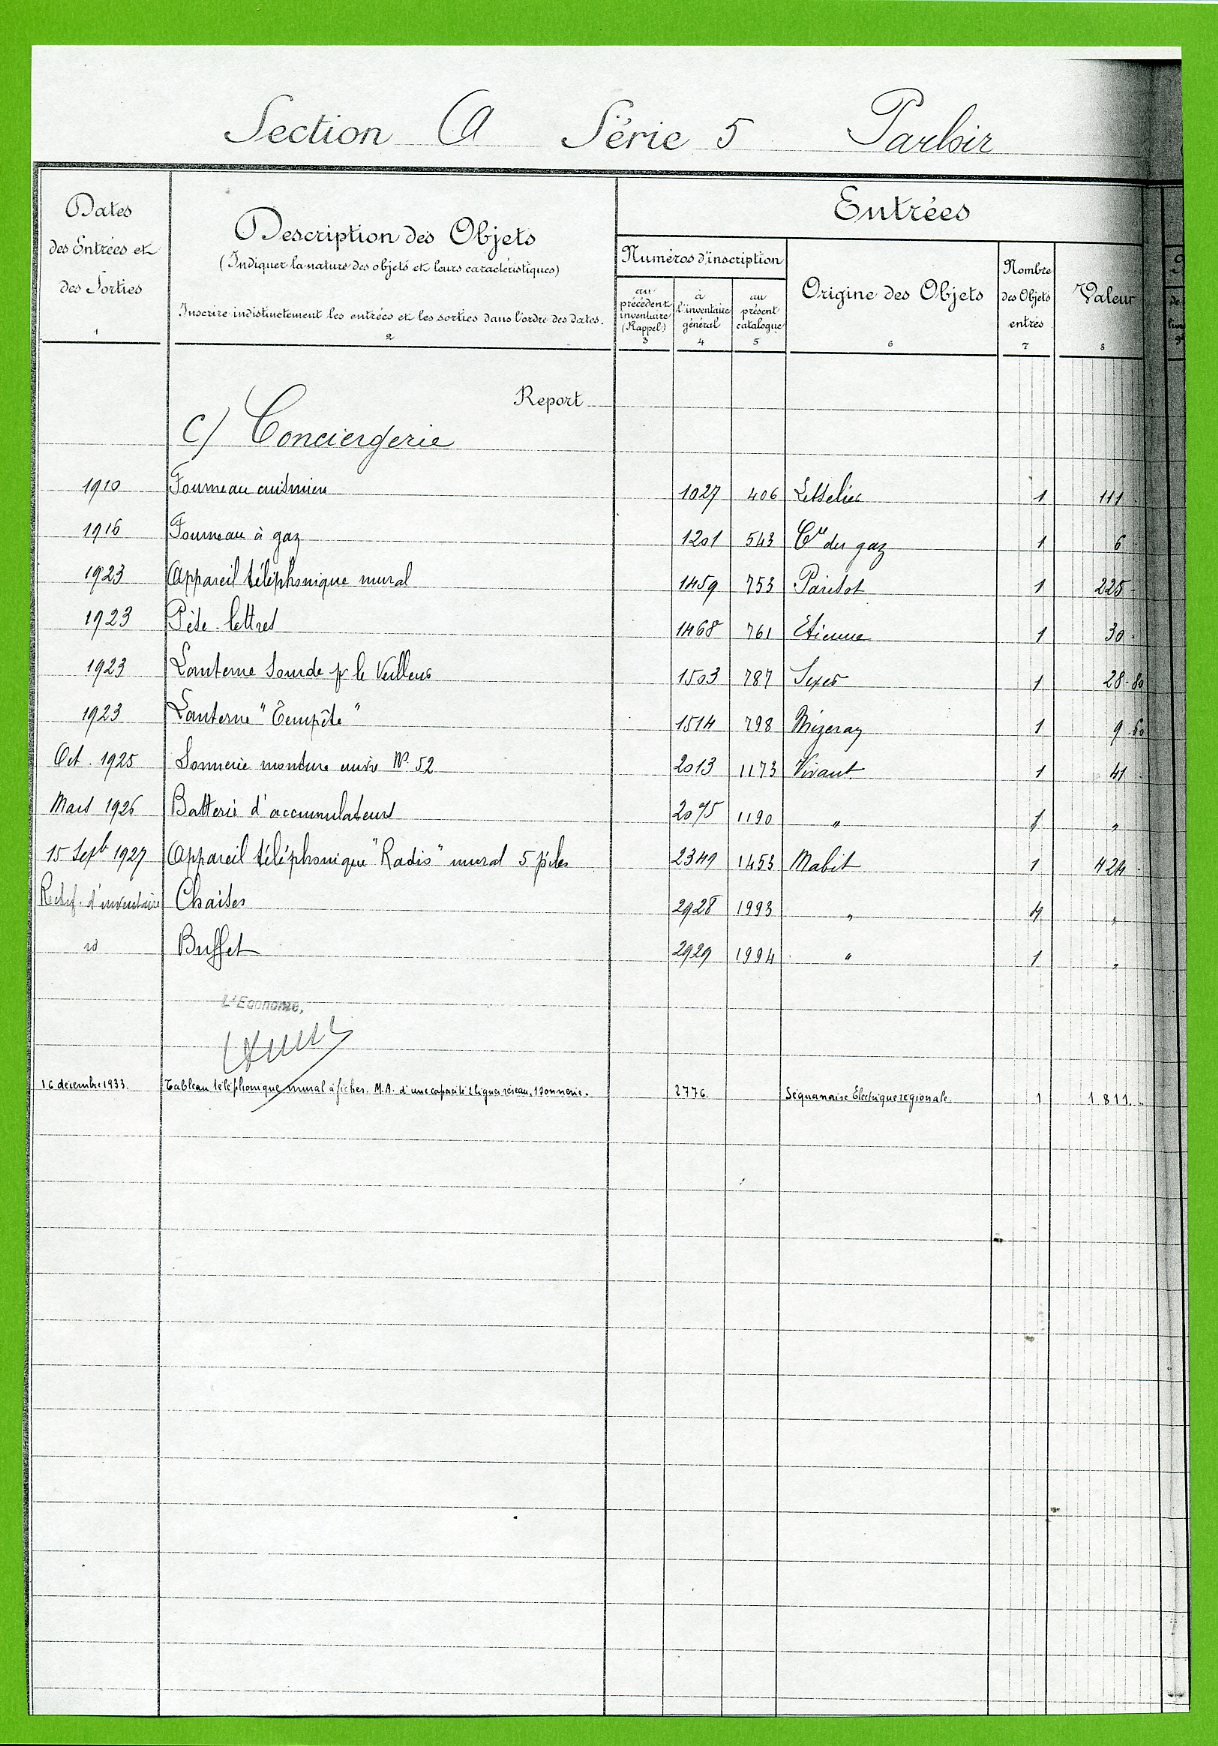 Section A Série 5 Parloir
Dates
des Entrées et
des Sorties
1
Description des Objets
(Indiquer la nature des objets et leurs caractéristiques)
Inscrire indistinctement les entrées et les sorties dans l'ordre des dates.
2
Entrées
Numéros d'inscription
au
précédent
inventaire
(Rappel)
3
à
l'inventaire
général
4
au
présent
catalogue
5
Origine des Objets
6
Nombre
des Objets
entrés
7
Valeur
8
Report
C) Conciergerie
1910 Fourneau cuisinière 1027 406 1 111
1916 Fourneau à gaz 1201 543 Cie du gaz 1 6
1923 Appareil téléphonique mural 1459 753 Parisot 1 225
1923 Pèse-lettres 1468 761 Etienne 1 30
1923 Lanterne Sourde pr le Veilleur 1503 787 1 28 80
1923 Lanterne "Tempête" 1514 798 Mézeray 1 9 60
Oct. 1925 Sonnerie monture cuivre No 52 2013 1173 Vivant 1 41
Mars 1926 Batterie d'accumulateurs 2075 1190 " 1 "
15 Sept 1927 Appareil téléphonique "Radio" mural 5 piles 2349 1453 Mabit 1 424
Rectif. d'inventaire Chaises 2928 1993 " 4 "
id Buffet 2929 1994 " 1 "
L'Econome,
16 décembre 1933. Tableau téléphonique mural à fiches. M.A. d'une capacité 2 lignes réseau, 1 sonnerie. 2776 Séquanaise Electrique régionale 1 1.811.